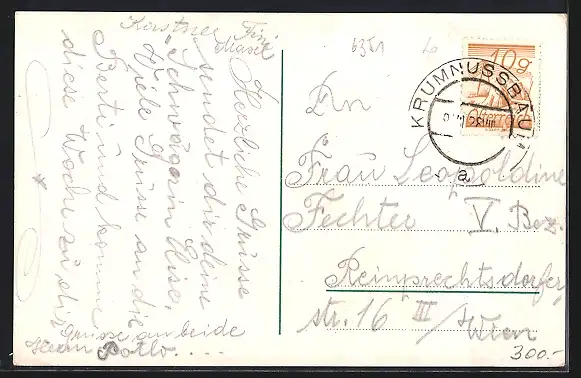 Herzliche Grüsse
sendet dir deine
Schwägerin Elise,
Viele Grüsse an die
Berti und komme
diese Woche zu dir
Grüsse an beide
Herrn
Kirstner
6351
10g
Österreich
KRUMNUSSBAUM
a
An
Frau Leopoldine
Fechter V. Bez.
Reinprechtsdorfer
str. 16 III
Wien
300.-